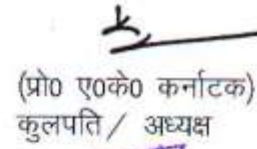 (प्रो0 ए0के0 कर्नाटक)
कुलपति / अध्यक्ष